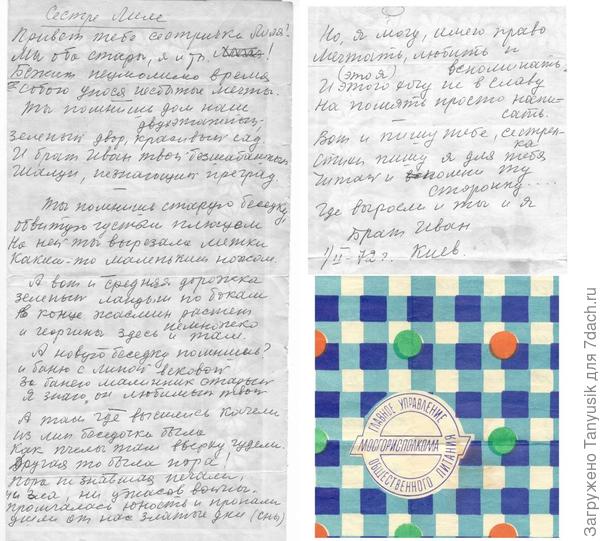 Сестре Лиле
Привет тебе сестричка Лиля!
Мы оба стары, я и ты !
Бежит неумолимо время
С собою унося несбытые мечты.
Ты помнишь дом наш
двухэтажный,
Зеленый двор, красивый сад
И брат Иван твой бесшабашный
Шалун, незнающий преград.
Ты помнишь старую беседку,
обвитую густым плющом
На ней ты вырезала метки
Каким-то маленьким ножом.
А вот и средняя дорожка
зеленый ландыш по бокам
В конце жасмин растет
немножко
и георгины здесь и там.
А новую беседку помнишь?
и баню с липой вековой
За банею малинник старый
Я знаю, он любимый твой
А там где высились качели
из лип беседочка была
Как пчелы там вверху гудели.
Другая то была пора!
Пора не знавшая печали,
ни зла, ни ужасов войны.
промчалась юность и пропали
ушли от нас златые дни (сны)
Но, я могу, имею право
Мечтать, любить и
(это я) вспоминать.
И этого хочу не в славу
На память просто напи-
сать.
Вот и пишу тебе, сестрен-
ка
Стихи пишу я для тебя
Читай и помни ту
сторонку....
Где выросли и ты и я
Брат Иван
1/II-72 г. Киев.
ГЛАВНОЕ УПРАВЛЕНИЕ
МОСГОРИСПОЛКОМА
ОБЩЕСТВЕННОГО ПИТАНИЯ
Загружено Tanyusik для 7dach.ru